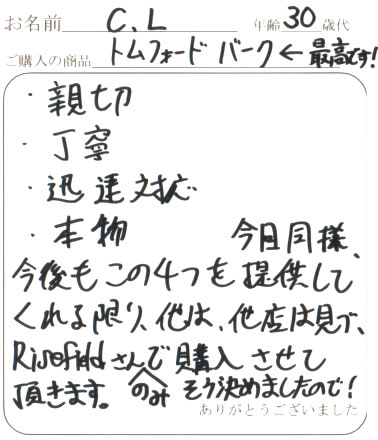 お名前 C.L 年齢 30 歳代
ご購入の商品 トムフォード バーク ← 最高です!
・親切
・丁寧
・迅速対応
・本物 今日同様、
今後もこの4つを提供して
くれる限り、他は、他店は見ず、
Risefieldさんで購入させて
頂きます。 のみ そう決めましたので!
ありがとうございました